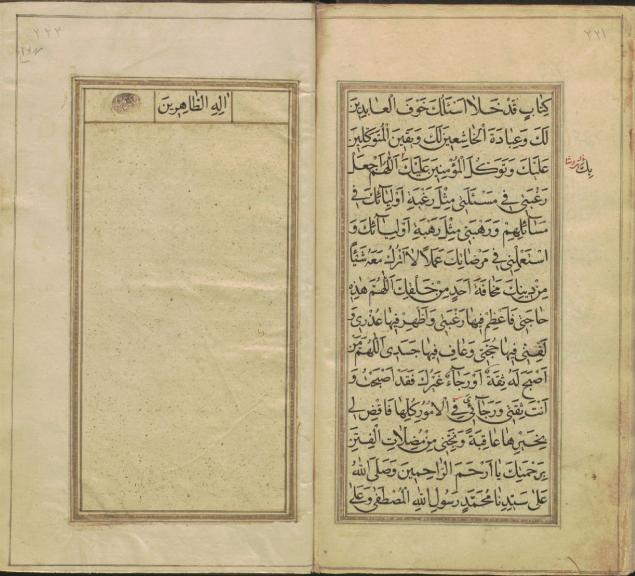 ٢٢١
كِتَابٍ قَدْ خَلَا أَسْئَلُكَ خَوْفَ الْعَابِدِينَ
لَكَ وَعِبَادَةَ الْخَاشِعِينَ لَكَ وَيَقِينَ الْمُتَوَكِّلِينَ
عَلَيْكَ وَتَوَكُّلَ الْمُؤْمِنِينَ عَلَيْكَ اَللّٰهُمَّ اجْعَلْ
رَغْبَتِي فِي مَسْئَلَتِي مِثْلَ رَغْبَةِ أَوْلِيَائِكَ فِي
مَسَائِلِهِمْ وَرَهْبَتِي مِثْلَ رَهْبَةِ أَوْلِيَائِكَ وَ
اسْتَعْمِلْنِي فِي مَرْضَاتِكَ عَمَلًا لَا أَتْرُكُ مَعَهُ شَيْئًا
مِنْ دِينِكَ مَخَافَةَ أَحَدٍ مِنْ خَلْقِكَ اَللّٰهُمَّ هٰذِهِ
حَاجَتِي فَأَعْظِمْ فِيهَا رَغْبَتِي وَأَظْهِرْ فِيهَا عُذْرِي وَ
لَقِّنِّي فِيهَا حُجَّتِي وَعَافِ فِيهَا جَسَدِي اَللّٰهُمَّ مَنْ
أَصْبَحَ لَهُ ثِقَةٌ أَوْ رَجَاءٌ غَيْرُكَ فَقَدْ أَصْبَحْتُ وَ
أَنْتَ ثِقَتِي وَرَجَائِي فِي الْأُمُورِ كُلِّهَا فَاقْضِ لِي
بِخَيْرِهَا عَاقِبَةً وَنَجِّنِي مِنْ مُضِلَّاتِ الْفِتَنِ
بِرَحْمَتِكَ يَا أَرْحَمَ الرَّاحِمِينَ وَصَلَّى اللّٰهُ
عَلَى سَيِّدِنَا مُحَمَّدٍ رَسُولِ اللّٰهِ الْمُصْطَفَى وَعَلَى
بِكَ
٢٢٢
آلِهِ الطَّاهِرِينَ